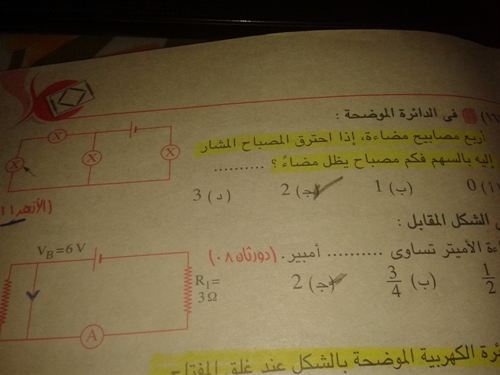 في الدائرة الموضحة :
أربع مصابيح مضاءة، إذا احترق المصباح المشار
إليه بالسهم فكم مصباح يظل مضاءً ؟ ..........
0 (ب) 1 (ج) 2 (د) 3
(الأزهر
الشكل المقابل :
الأميتر تساوى .......... أمبير. (دور ثان ٠٨)
1/2 (ب) 3/4 (ج) 2
V_B=6 V
R₁=
3 Ω
A
الكهربية الموضحة بالشكل عند غلق المفتاح
X
X
X
X